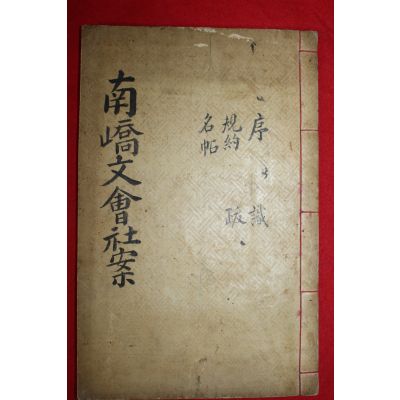 南嶠文會社案
序
識
規約
跋
名帖